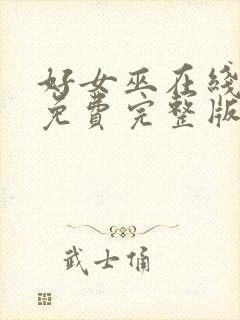 好女巫在线
免费完整版
武士俑